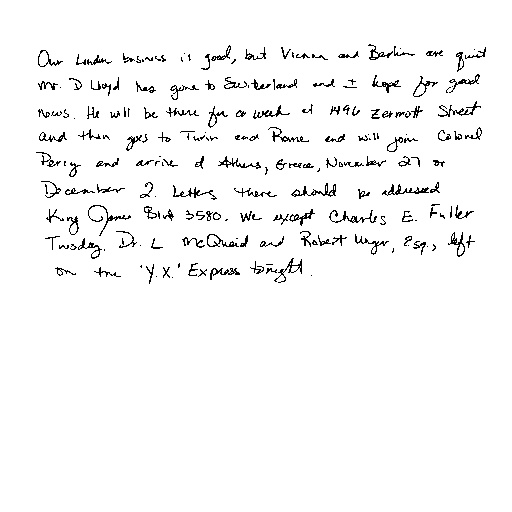 Our London business is good, but Vienna and Berlin are quiet
Mr. D Lloyd has gone to Switzerland and I hope for good
news. He will be there for a week at 1496 Zermott Street
and then goes to Turin and Rome and will join Colonel
Perry and arrive at Athens, Greece, November 27 or
December 2. Letters there should be addressed
King James Blvd 3580. We expect Charles E. Fuller
Tuesday. Dr. L McQuaid and Robert Unger, Esq., left
on the 'Y.X.' Express tonight.